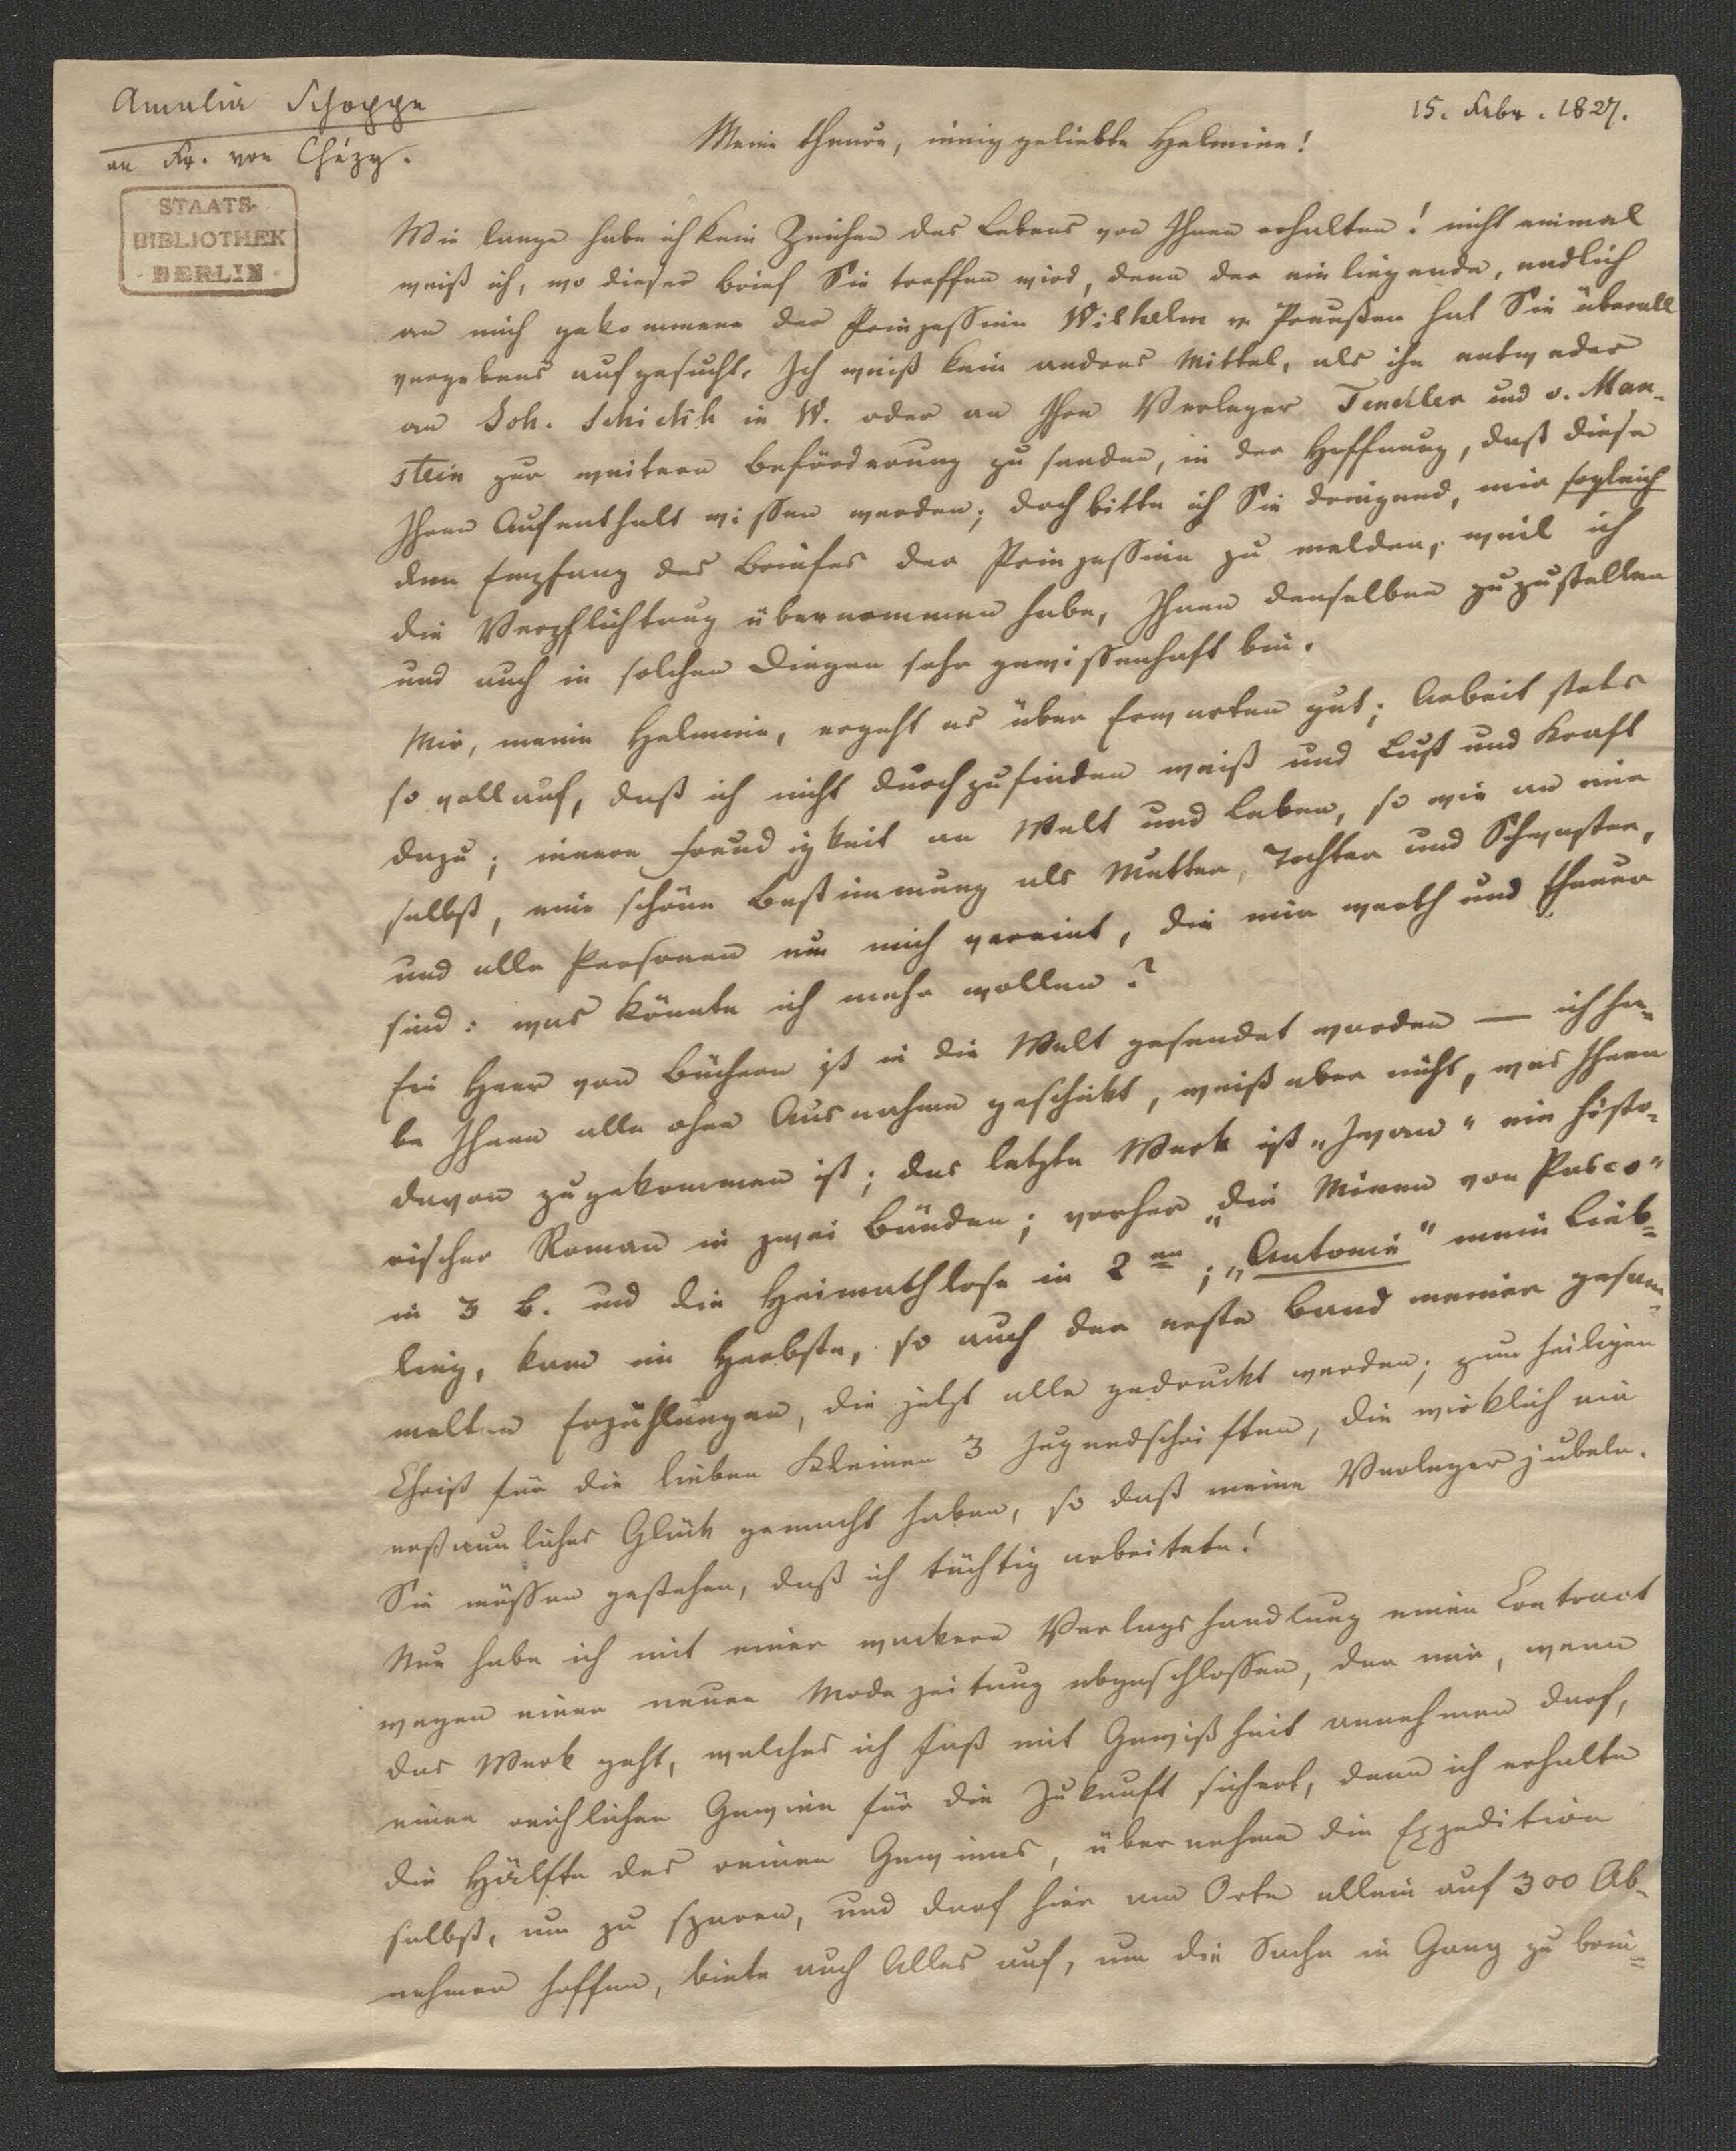 Amalia Schoppe
an Fr. von Chézy.
15. Febr. 1827.
STAATS-
BIBLIOTHEK
BERLIN
Meine theure, innig geliebte Helmina!
Wie lange habe ich kein Zeichen des Lebens von Ihnen erhalten! nicht einmal
weiß ich, wo dieser Brief Sie treffen wird, denn der einliegende, endlich
an mich gekommene der Prinzessinn Wilhelm v. Preußen hat Sie überall
vergebens aufgesucht. Ich weiß kein andres Mittel, als ihn entweder
an Joh. Schickh in W. oder an Ihre Verleger Tendler und v. Man-
stein zur weitern Beförderung zu senden, in der Hoffnung, daß diese
Ihren Aufenthalt wissen werden; doch bitte ich Sie dringend, mir sogleich
den Empfang des Briefes der Prinzessinn zu melden, weil ich
die Verpflichtung übernommen habe, Ihnen denselben zuzustellen
und auch in solchen Dingen sehr gewissenhaft bin.
Mir, meine Helmina, ergeht es über Erwarten gut; Arbeit stets
so vollauf, daß ich nicht durchzufinden weiß und Lust und Kraft
dazu; innere Freudigkeit an Welt und Leben, so wie an mir
selbst, eine schöne Bestimmung als Mutter, Tochter und Schwester,
und alle Personen um mich vereint, die mir werth und theuer
sind: was könnte ich mehr wollen?
Ein Heer von Büchern ist in die Welt gesendet worden — ich ha-
be Ihnen alle ohne Ausnahme geschickt, weiß aber nicht, was Ihnen
davon zugekommen ist; das letzte Werk ist „Iwan" ein histo-
rischer Roman in zwei Bänden; vorher „die Minen von Pasco"
in 3 B. und die Heimathlose in 2en; „Antonie" mein Lieb-
ling, kam im Herbste, so auch der erste Band meiner gesam-
melten Erzählungen, die jetzt alle gedruckt werden; zum heiligen
Christ für die lieben Kleinen 3 Jugendschriften, die wirklich ein
erstaunliches Glück gemacht haben, so daß meine Verleger jubeln.
Sie müssen gestehen, daß ich tüchtig arbeitete!
Nun habe ich mit einer wackern Verlagshandlung einen Contract
wegen einer neuen Modezeitung abgeschlossen, der mir, wenn
das Werk geht, welches ich fast mit Gewißheit annehmen darf,
einen reichlichen Gewinn für die Zukunft sichert, denn ich erhalte
die Hälfte des reinen Gewinns, übernehme die Expedition
selbst, um zu sparen, und darf hier am Orte allein auf 300 Ab-
nehmer hoffen, biete auch Alles auf, um die Sache in Gang zu brin-